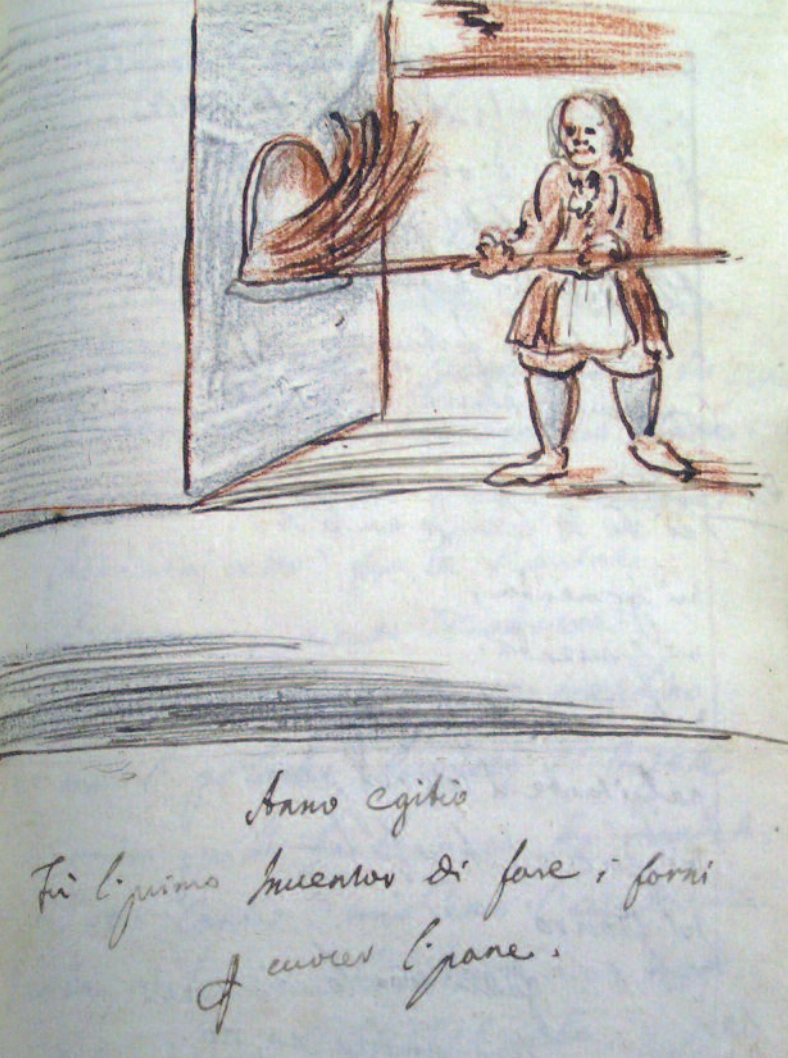 Anno egitio
Fù l'primo Inventor di fare i forni
cuocer l'pane.